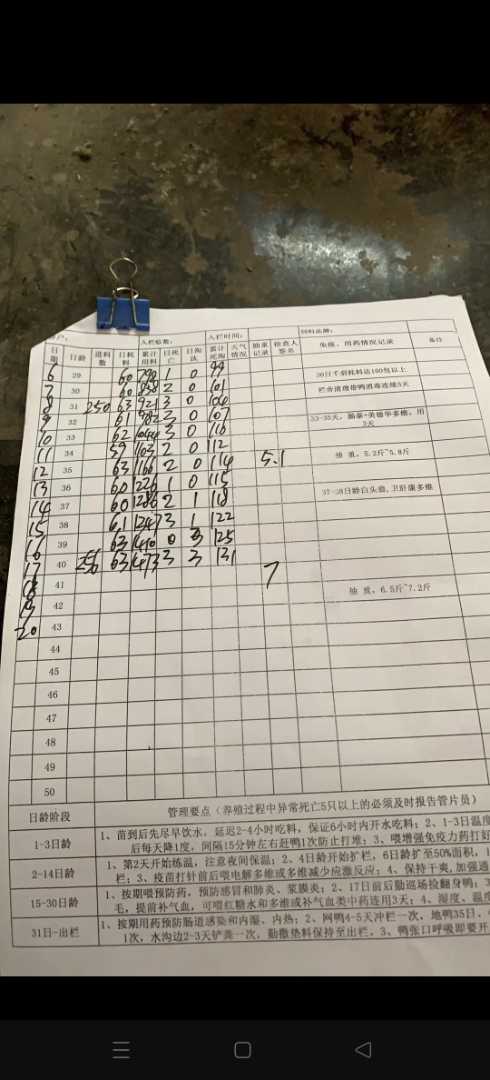 户：	入栏羽数：	入栏时间：	饲料品牌：
日期 日龄 进料数 日耗料 累计用料 日死亡 日淘汰 累计死淘 天气情况 抽重记录 检查人签名 免疫、用药情况记录 备注
6 29 60 1 0 99 30日千羽耗料达190包以上
7 30 60 2 0 101 栏舍清理带鸭消毒连续3天
8 31 250 63 921 3 0 104
9 32 61 982 3 0 107 33-35天，肠泰+美德华多糖，用3天
10 33 62 1044 3 0 110
11 34 59 1103 2 0 112 抽重，5.2斤~5.8斤
12 35 63 1166 2 0 114 5.1
13 36 60 1226 1 0 115 37-38日龄白头翁、卫肝康多维
14 37 60 1286 2 1 118
15 38 61 1347 3 1 122
16 39 63 1410 0 3 125
17 40 250 63 1473 3 3 131
18 41 7 抽重，6.5斤~7.2斤
19 42
20 43
44
45
46
47
48
49
50
日龄阶段 管理要点（养殖过程中异常死亡5只以上的必须及时报告管片员）
1-3日龄 1、苗到后先尽早饮水，延迟2-4小时吃料，保证6小时内开水吃料；2、1-3日温度
后每天降1度，间隔15分钟左右赶鸭1次防止打堆；3、喂增强免疫力药打好
2-14日龄 1、第2天开始练温，注意夜间保温；2、4日龄开始扩栏，6日龄扩至50%面积，1
栏；3、疫苗打针前后喂电解多维或多维减少应激反应；4、保持干爽，加强通
15-30日龄 1、按期喂预防药，预防感冒和肺炎、浆膜炎；2、17日前后勤巡场捡翻身鸭；3
毛，提前补气血，可喂红糖水和多维或补气血类中药连用3天；4、湿度、温度
31日-出栏 1、按期用药预防肠道感染和内湿、内热；2、网鸭4-5天冲栏一次，地鸭35日，
1次，水沟边2-3天铲粪一次，勤撒垫料保持至出栏。3、鸭张口呼吸即要开